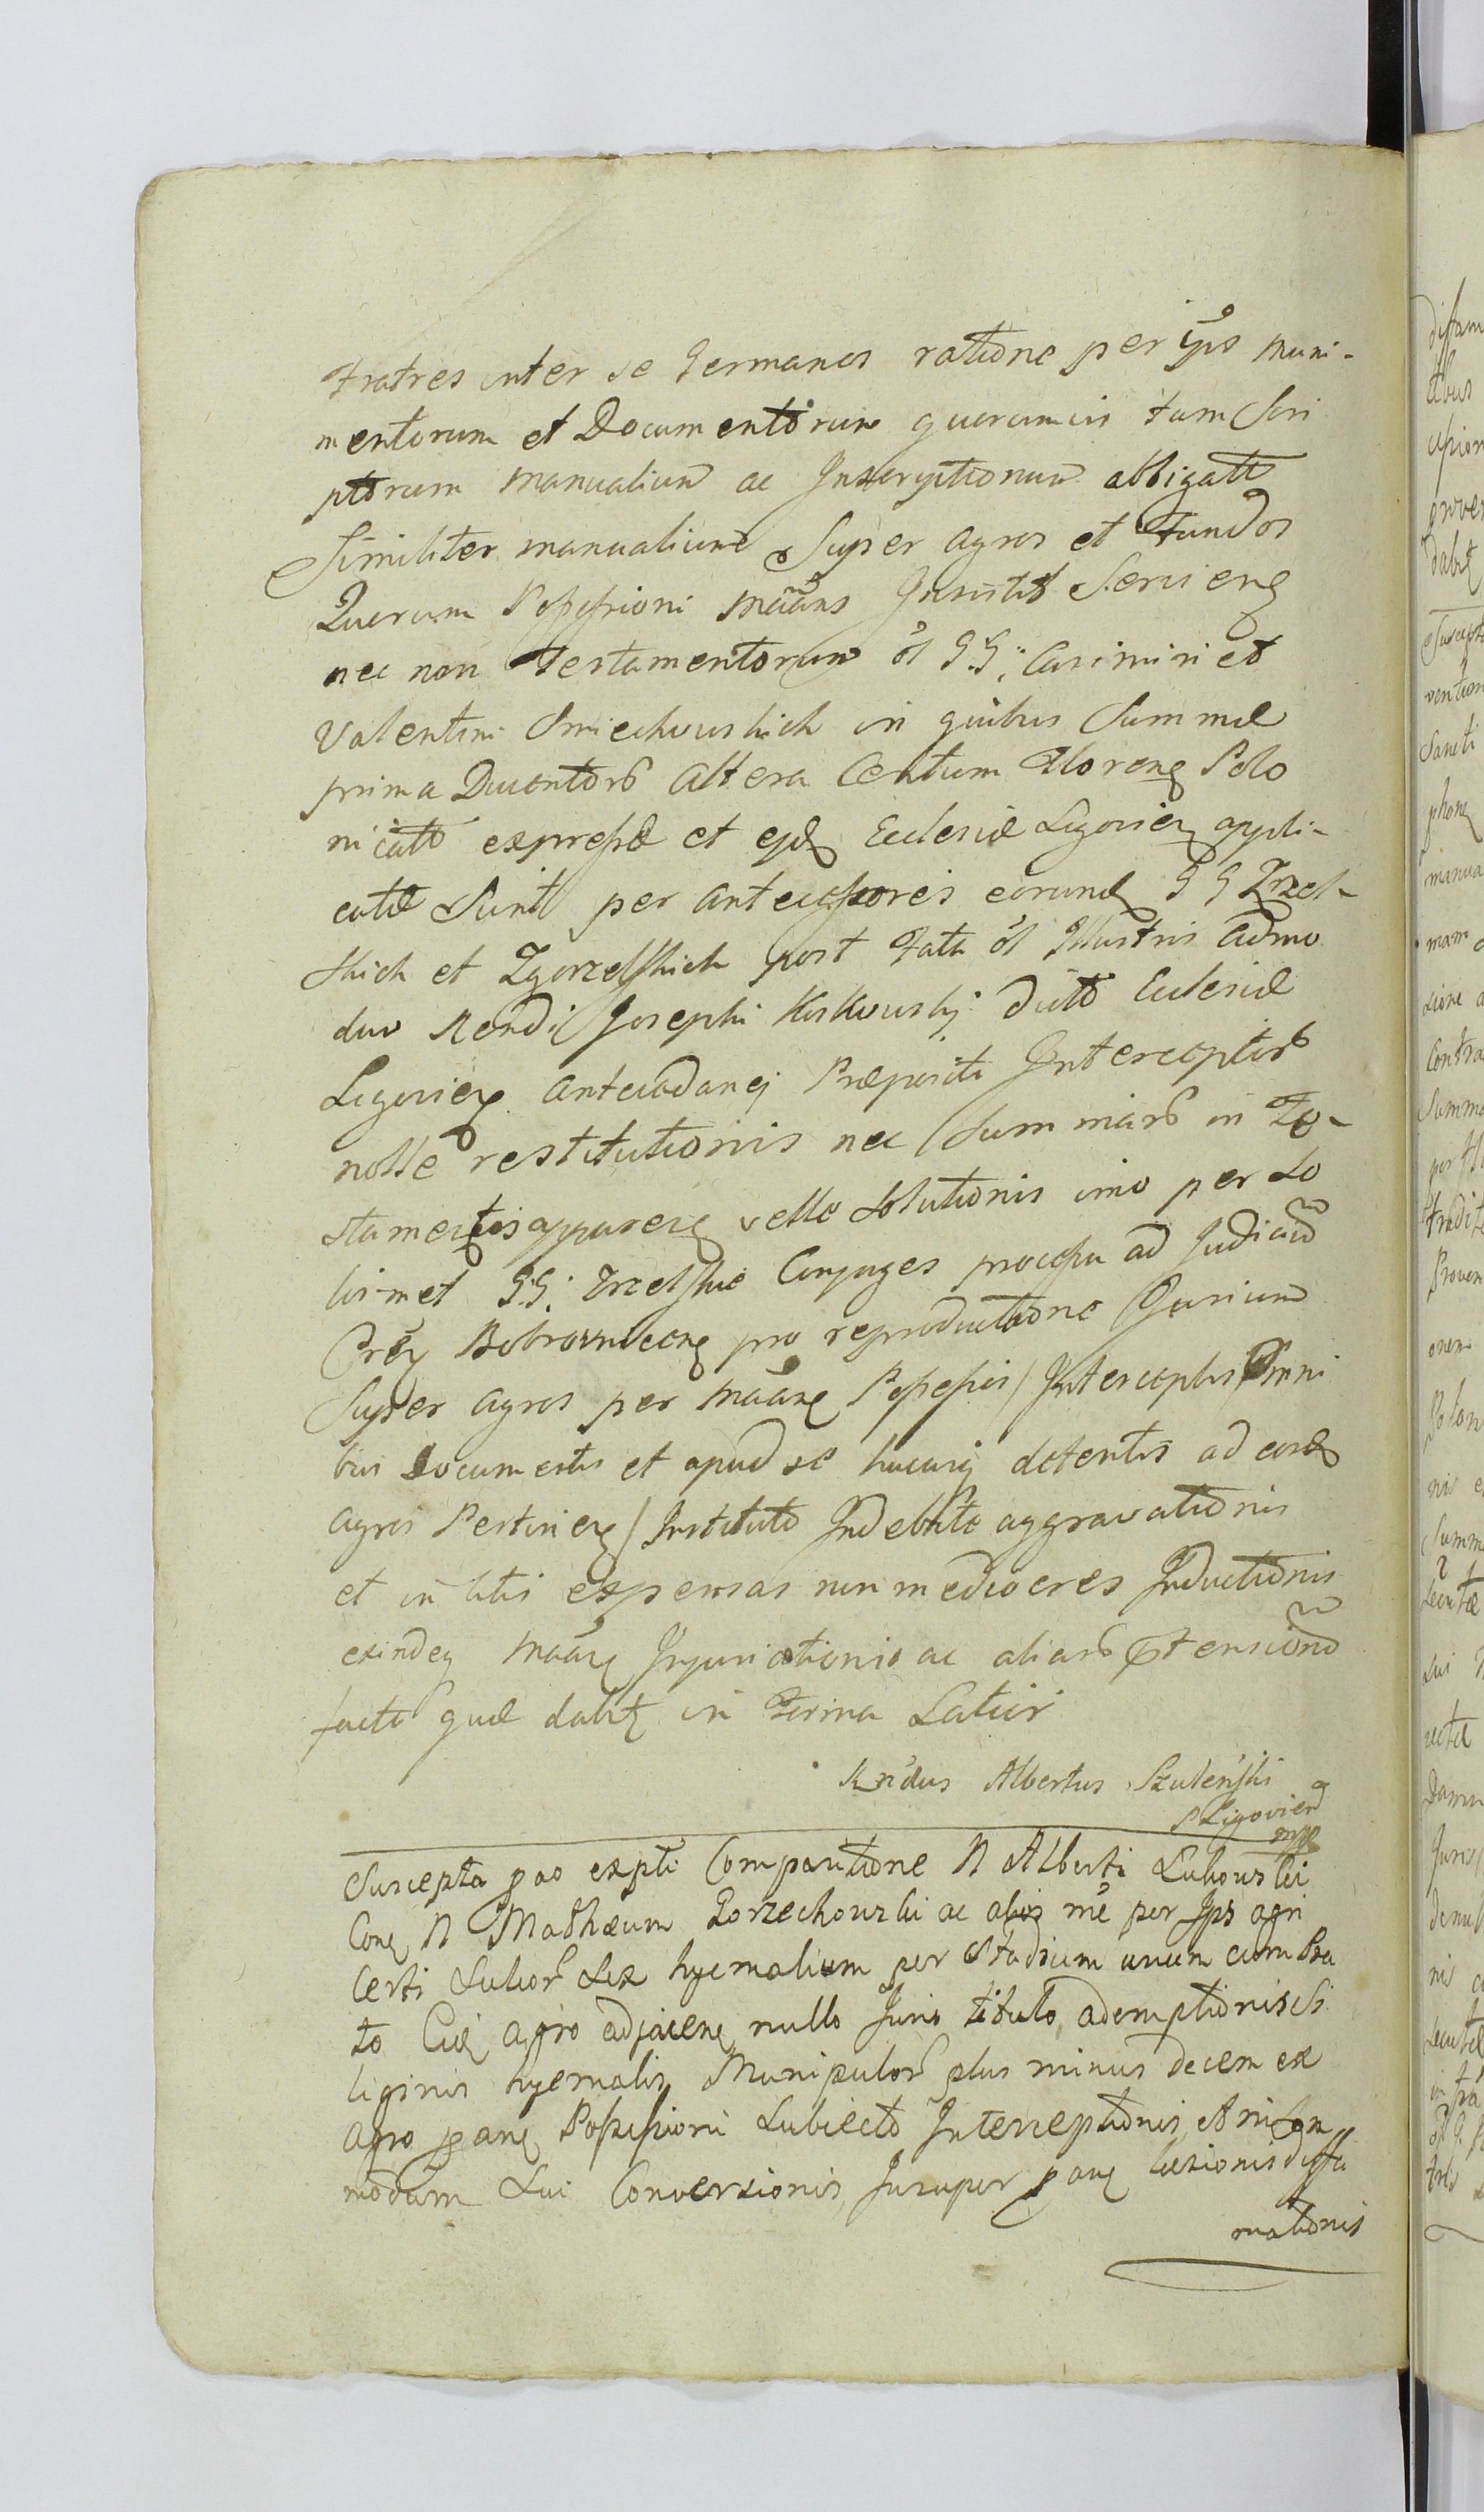 Fratres inter se Germanos ratione per ipos muni-
mentorum et Documentorum quorumvis tam Scri
ptorum manualium ac Inscriptionum obligatt
Similiter manualium Super agros et Fundos
Quorum Possessioni maans Insistit Servieng
nec non Testamentorum ol GG: Casimiri et
Valentini Smiechowskich in quibus Summæ
prima Ducentorb altera Centum Floreng Polo
nicalt expressæ et ejdg Ecclesiæ Ligovieng appli-
catæ Sunt per antecessores eorundg GG Trzel-
skich et Zgorzelskich post Fata ol Illustris Admo
dum Rendi Josephi Koskowskij dictæ Ecclesiæ
Ligovieng antecedanej Præpositi Interceptorb
nolle restitutionis nec Summarb in Te-
stamentis appareng velle Solutionis imo per So
los-met GG: Trzelskie Conjuges processu ad Judiciu
Creg Bobrowniceng pro reproductione Jurium
Super agros per maang Possessis / Interceptis Omni
bus Documentis et apud se hucusq detentis ad eosdg
agros Pertineng / Instituto Indebite aggravationis
et in litis expensas non mediocres Inductionis
exindeq maang Injuriationis ac aliarb Ptensionu
facti quæ dabitg in Termo Latior
Rndus Albertus Szulenski
P Ligovieng
mpp
Suscepta pao expti Comparitione N Alberti Lubowski
Cong N Mathæum Gorzechowski ac alios me per Ips agri
certi Sulcorb Sex hyemalium per Stadium unum cum Pra
to Cuig agro adjaceng nullo Juris titulo ademptionis Si
liginis hyemalis Manipulorb plus minus decem ex
agro pang Possessioni Subjecto Interceptionis et in Com
modum Sui Conversionis Insuper pang læsionis diffa
mationis